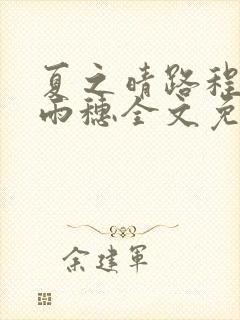 夏之晴路程
雨穗全文免
余建军